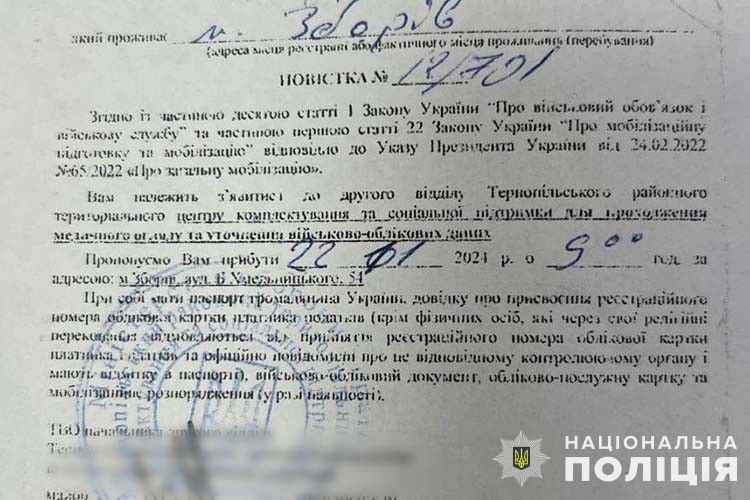 який проживає м. Зборів
(адреса місця реєстрації або фактичного місця проживання (перебування)
ПОВІСТКА № 12/701
Згідно із частиною десятою статті 1 Закону України “Про військовий обов’язок і
військову службу” та частиною першою статті 22 Закону України “Про мобілізаційну
підготовку та мобілізацію” відповідно до Указу Президента України від 24.02.2022
№65/2022 «Про загальну мобілізацію».
Вам належить з’явитися до другого відділу Тернопільського районного
територіального центру комплектування та соціальної підтримки для проходження
медичного огляду та уточнення військово-облікових даних
Пропоную Вам прибути 22 01 2024 р. о 9⁰⁰ год. за
адресою: м Зборів, вул. Б Хмельницького, 54
При собі мати паспорт громадянина України, довідку про присвоєння реєстраційного
номера облікової картки платника податків (крім фізичних осіб, які через свої релігійні
переконання відмовляються від прийняття реєстраційного номера облікової картки
платника податків та офіційно повідомили про це відповідному контролюючому органу і
мають відмітку в паспорті), військово-обліковий документ, обліково-послужну картку та
мобілізаційне розпорядження (у разі наявності).
ТВО начальника другого
НАЦІОНАЛЬНА
ПОЛІЦІЯ